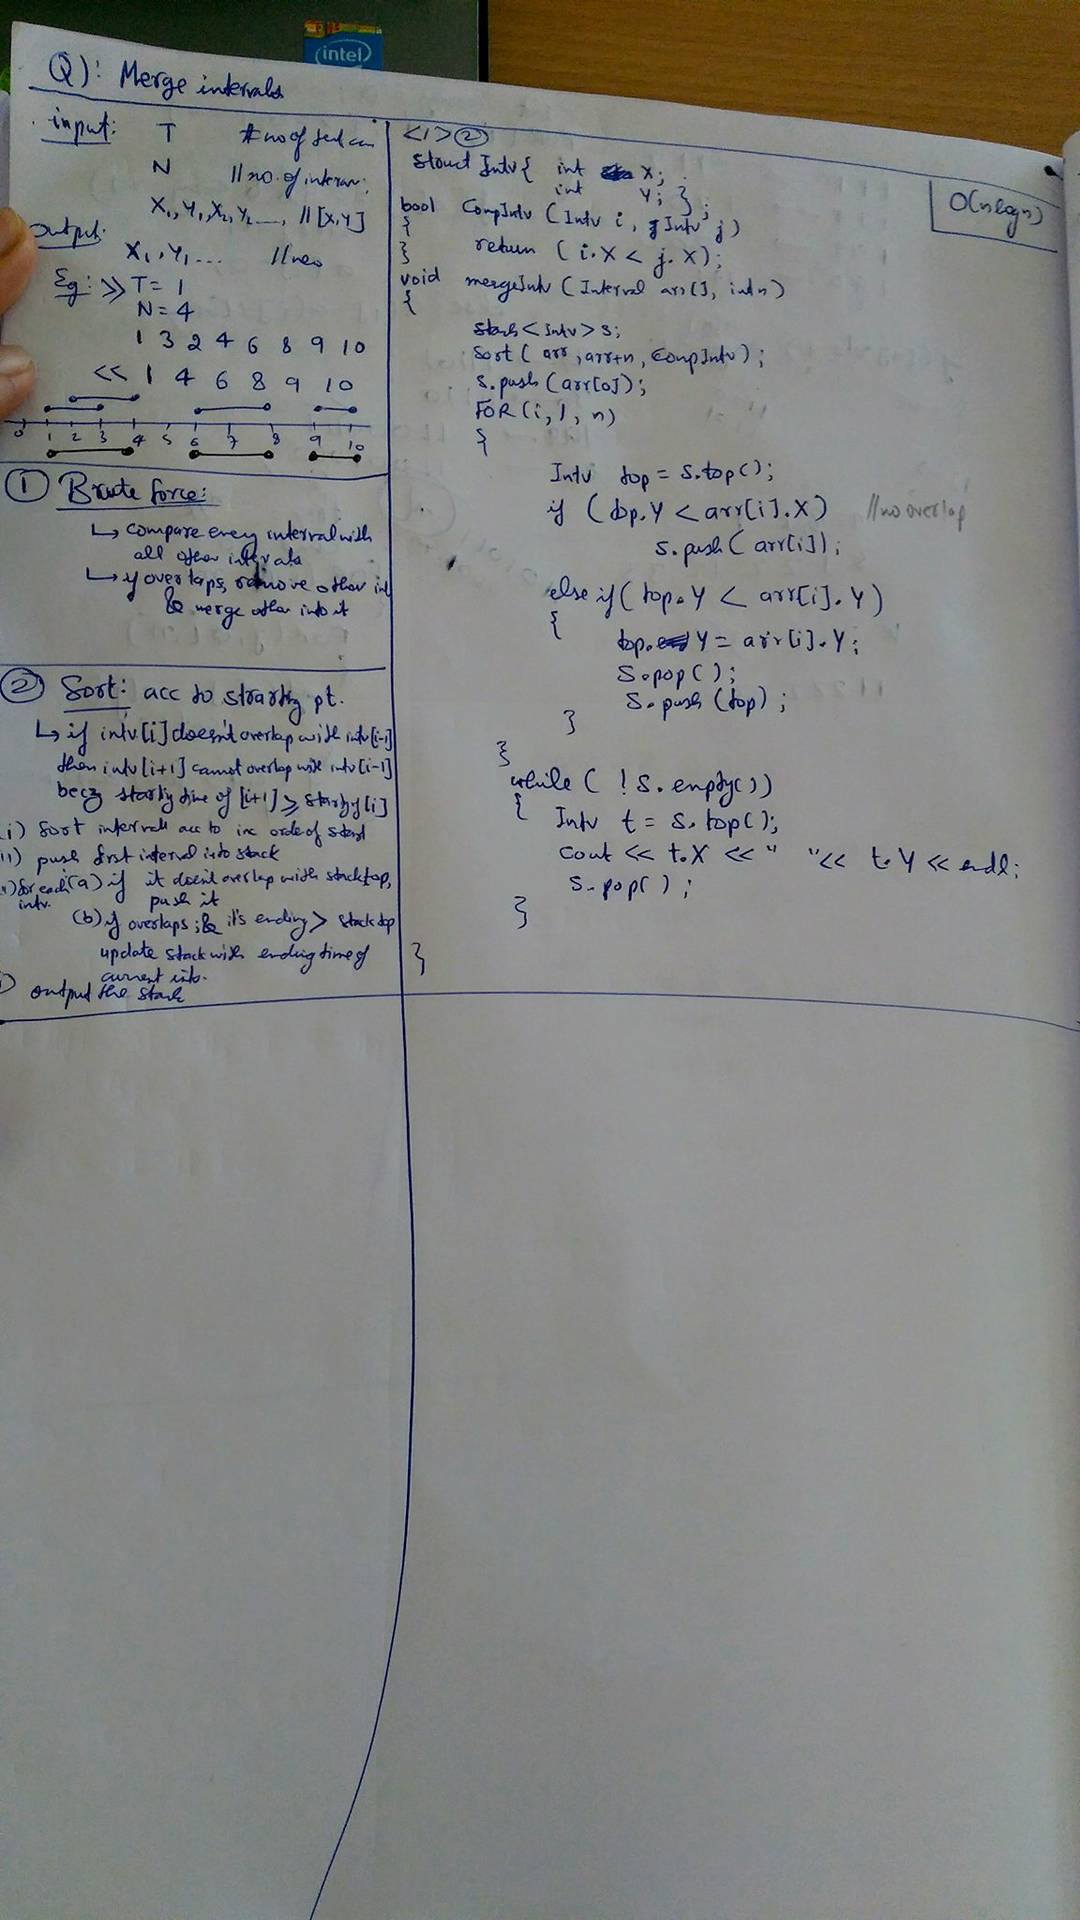 intel
Q): Merge intervals
input: T #no of test
N // no. of
X1, Y1, X2, Y2 ..., // [X,Y]
output:
X1, Y1 ...
Eg: >> T = 1
N = 4
1 3 2 4 6 8 9 10
<< 1 4 6 8 9 10
0 1 2 3 4 5 6 7 8 9 10
① Brute force:
↳ compare every interval with
all other intervals
↳ if overlaps, remove other
& merge other into it
② Sort: acc to starting pt.
↳ if intv[i] doesn't overlap with intv[i-1]
then intv[i+1] cannot overlap with intv[i-1]
becz starting time of [i+1] ≥ start of [i]
i) Sort intervals acc to inc order of start
ii) push first interval into stack
for each intv. (a) if it doesn't overlap with stack top,
push it
(b) if overlaps & it's ending > stack top
update stack with ending time of
current
output the stack
<1> ②
struct Intv{ int X;
int Y; };
bool CompIntv (Intv i, Intv j)
{
return (i.X < j.X);
}
void mergeIntv (Interval arr[], int n)
{
stack<Intv> s;
sort( arr, arr+n, CompIntv);
s.push(arr[0]);
FOR(i,1,n)
{
Intv top = s.top();
if (top.Y < arr[i].X) // no overlap
s.push( arr[i]);
else if( top.Y < arr[i].Y)
{
top.Y = arr[i].Y;
s.pop();
s.push(top);
}
}
while( !s.empty())
{
Intv t = s.top();
cout << t.X << " " << t.Y << endl;
s.pop();
}
}
O(nlogn)